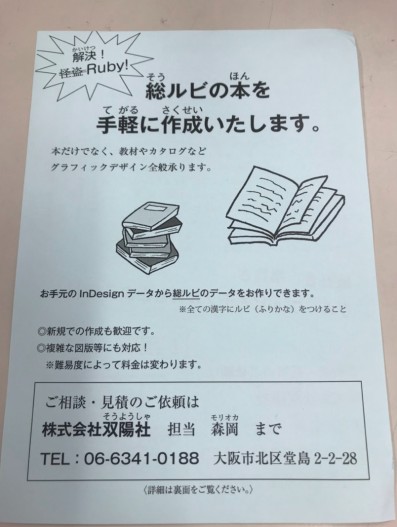 かいけつ
解決！
怪盗 Ruby!
そう ほん
総ルビの本を
て がる さくせい
手軽に作成いたします。
本だけでなく、教材やカタログなど
グラフィックデザイン全般承ります。
お手元の InDesign データから総ルビのデータをお作りできます。
※全ての漢字にルビ（ふりかな）をつけること
◎新規での作成も歓迎です。
◎複雑な図版等にも対応！
※難易度によって料金は変わります。
ご相談・見積のご依頼は
そうようしゃ モリオカ
株式会社双陽社 担当 森岡 まで
TEL：06-6341-0188 大阪市北区堂島 2-2-28
〈詳細は裏面をご覧ください。〉